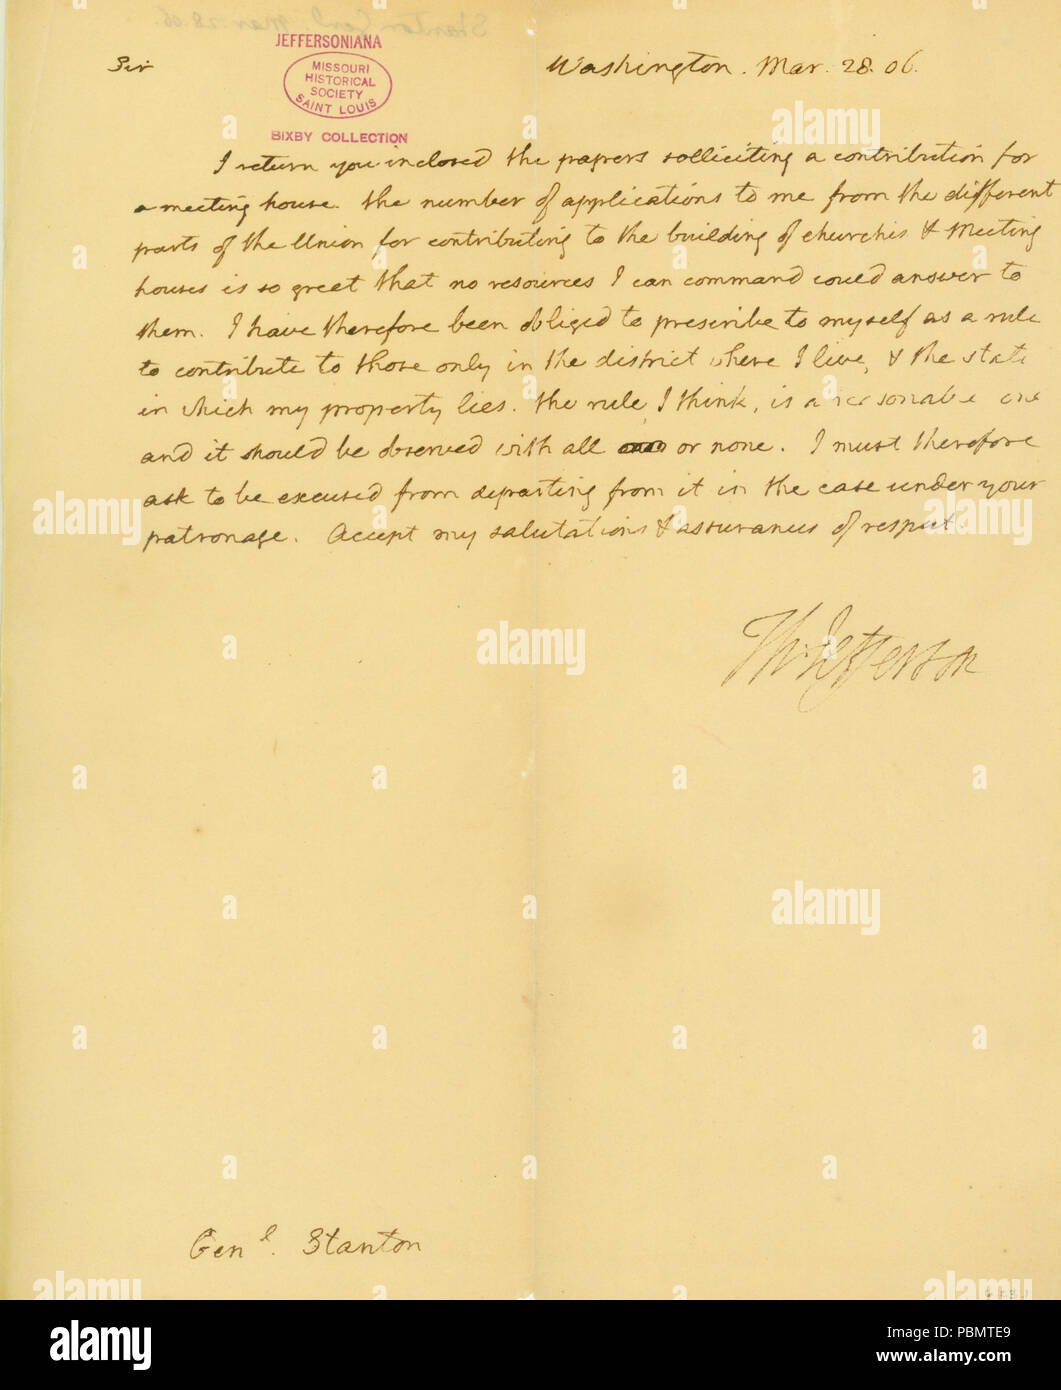 Stanton Genl. Mar. 28. 06.
JEFFERSONIANA
MISSOURI
HISTORICAL
SOCIETY
SAINT LOUIS
BIXBY COLLECTION
Sir
Washington. Mar. 28. 06.
I return you inclosed the papers solliciting a contribution for
a meeting house. the number of applications to me from the different
parts of the Union for contributing to the building of churches & Meeting
houses is so great that no resources I can command could answer to
them. I have therefore been obliged to prescribe to myself as a rule
to contribute to those only in the district where I live, & the state
in which my property lies. the rule, I think, is a reasonable one
and it should be observed with all or none. I must therefore
ask to be excused from departing from it in the case under your
patronage. Accept my salutations & assurances of respect.
Th: Jefferson
Genl. Stanton
alamy
a
alamy
Image ID: PBMTE9
www.alamy.com